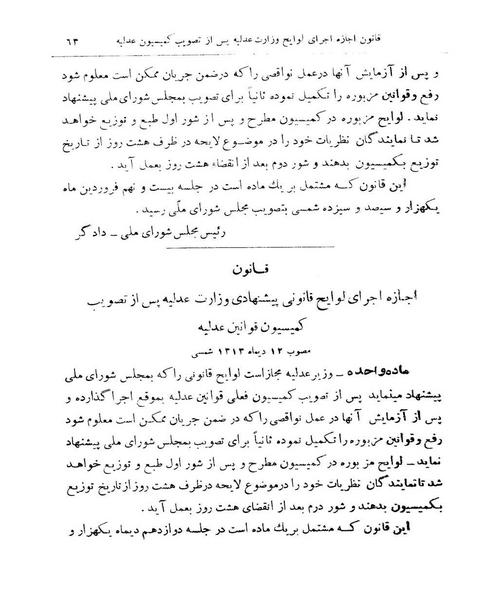 قانون اجازه اجرای لوایح وزارت عدلیه پس از تصویب کمیسیون عدلیه ۶۳
و پس از آزمایش آنها درعمل نواقصی را که درضمن جریان ممکن است معلوم شود
رفع وقوانین مزبوره را تکمیل نموده ثانیاً برای تصویب بمجلس شورای ملی پیشنهاد
نماید . لوایح مزبوره در کمیسیون مطرح و پس از شور اول طبع و توزیع خواهد
شد تا نمایندگان نظریات خود را در موضوع لایحه در ظرف هشت روز از تاریخ
توزیع بکمیسیون بدهند و شور دوم بعد از انقضاء هشت روز بعمل آید .
این قانون که مشتمل بر یك ماده است در جلسه بیست و نهم فروردین ماه
یکهزار و سیصد و سیزده شمسی بتصویب مجلس شورای ملی رسید .
رئیس مجلس شورای ملی ـ دادگر
قانون
اجازه اجرای لوایح قانونی پیشنهادی وزارت عدلیه پس از تصویب
کمیسیون قوانین عدلیه
مصوب ۱۲ دیماه ۱۳۱۳ شمسی
ماده واحده ـ وزیر عدلیه مجاز است لوایح قانونی را که بمجلس شورای ملی
پیشنهاد مینماید پس از تصویب کمیسیون فعلی قوانین عدلیه بموقع اجرا گذارده و
پس از آزمایش آنها در عمل نواقصی را که در ضمن جریان ممکن است معلوم شود
رفع وقوانین مزبوره را تکمیل نموده ثانیاً برای تصویب بمجلس شورای ملی پیشنهاد
نماید ـ لوایح مزبوره در کمیسیون مطرح و پس از شور اول طبع و توزیع خواهد
شد تا نمایندگان نظریات خود را در موضوع لایحه در ظرف هشت روز از تاریخ توزیع
بکمیسیون بدهند و شور دوم بعد از انقضای هشت روز بعمل آید .
این قانون که مشتمل بر یك ماده است در جلسه دوازدهم دیماه یکهزار و